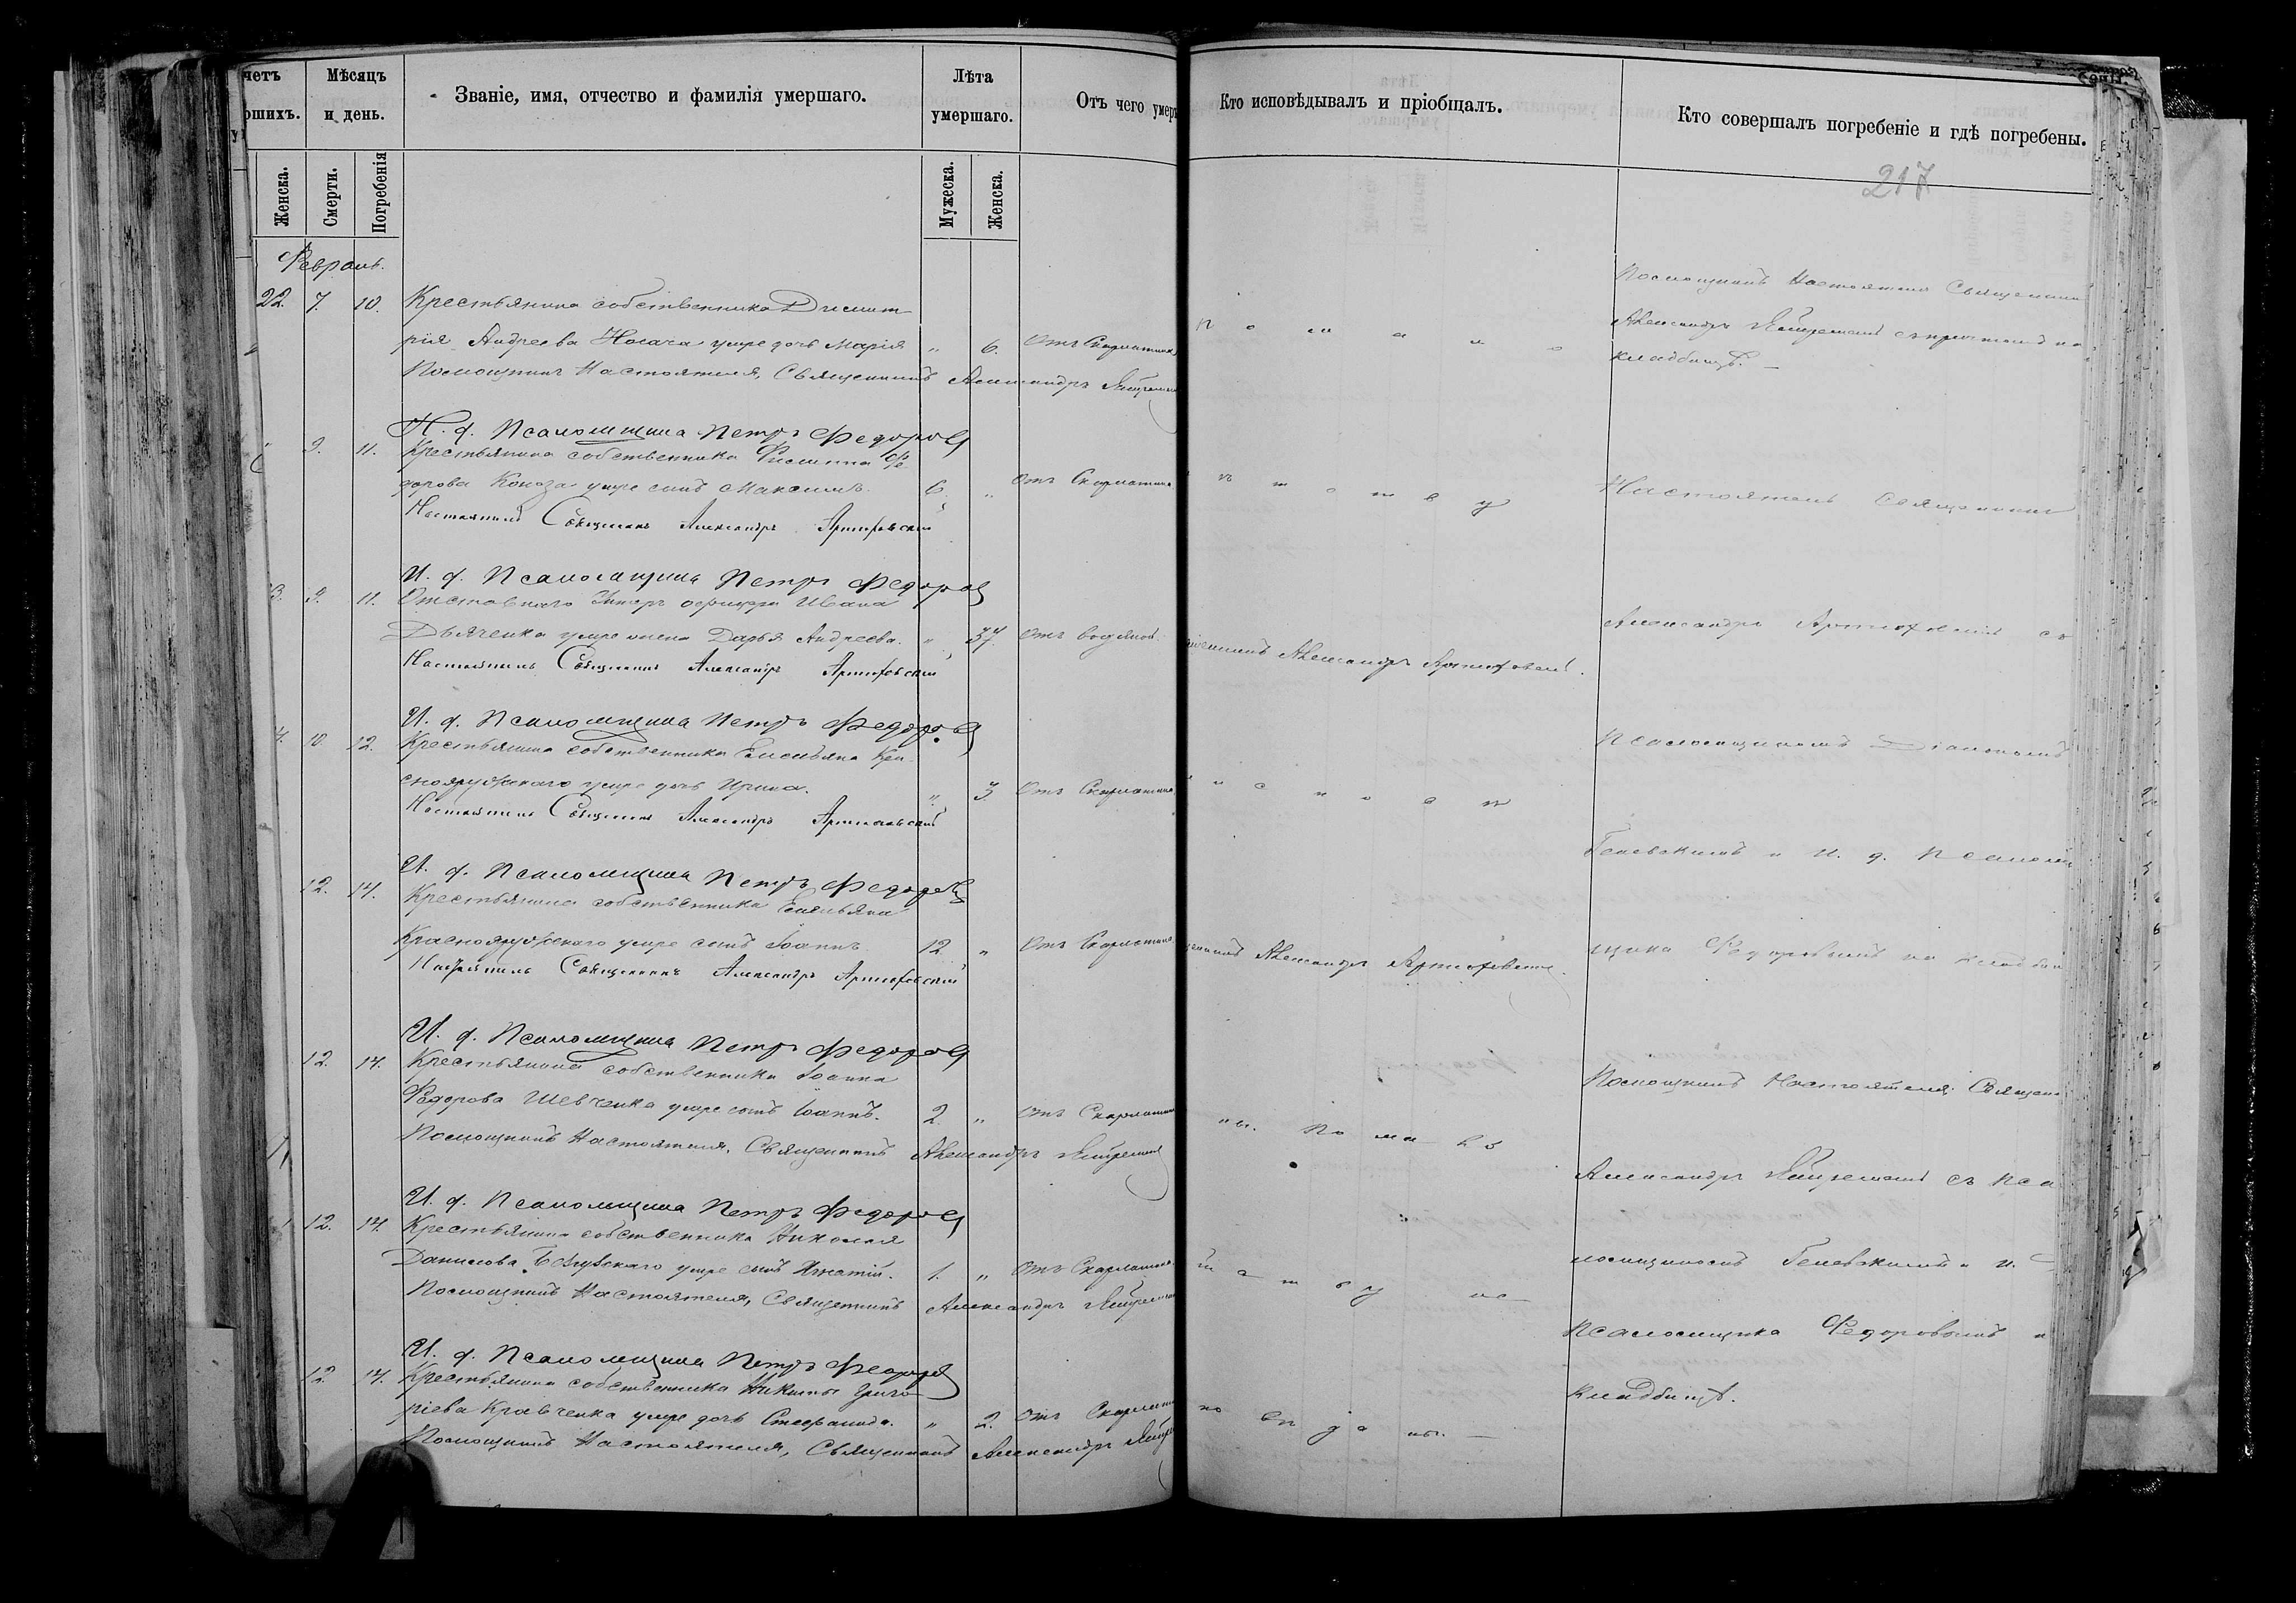 четъ
ршихъ.
Мѣсяцъ
и день.
Званіе, имя, отчество и фамилія умершаго.
Лѣта
умершаго.
Отъ чего умер
Женска.
Смерти.
Погребенія
Мужеска.
Женска.
Февраль.
22. 7. 10. Крестьянина собственника Димит
рія Андреева Носача умре дочь Марія " 6. Отъ Скарлатины
Помощникъ Настоятеля, Священникъ Александръ
И. д. Псаломщика Петръ Федоровъ
9. 11. Крестьянина собственника Филиппа Фе
дорова Коноза умре сынъ Максимъ. 6 " Отъ Скарлатины
Настоятель Священникъ Александръ Артюховскій
И. д. Псаломщика Петръ Федоровъ
3. 9. 11. Отставнаго Унтеръ офицера Ивана
Дьяченка умре жена Дарья Андреева. " 37. Отъ водяной.
Настоятель Священникъ Александръ Артюховскій
И. д. Псаломщика Петръ Федоровъ
4. 10. 12. Крестьянина собственника Емельяна Кра
снояружскаго умре дочь Ирина. " 3. Отъ Скарлатины
Настоятель Священникъ Александръ Артюховскій
И. д. Псаломщика Петръ Федоровъ
12. 14. Крестьянина собственника Емельяна
Краснояружскаго умре сынъ Іоаннъ. 12 " Отъ Скарлатины
Настоятель Священникъ Александръ Артюховскій
И. д. Псаломщика Петръ Федоровъ
12. 14. Крестьянина собственника Іоанна
Федорова Шевченка умре сынъ Іоаннъ. 2. " Отъ Скарлатины
Помощникъ Настоятеля, Священникъ Александръ
И. д. Псаломщика Петръ Федоровъ
12. 14. Крестьянина собственника Николая
Данилова умре сынъ Игнатій. 1. " Отъ Скарлатины
Помощникъ Настоятеля, Священникъ Александръ
И. д. Псаломщика Петръ Федоровъ
12. 14. Крестьянина собственника Никиты Григо
ріева Кравченка умре дочь Стефанида. " 2. Отъ Скарлат
Помощникъ Настоятеля, Священникъ Александръ
Кто исповѣдывалъ и пріобщалъ.
Кто совершалъ погребеніе и гдѣ погребены.
217
щенникъ Александръ Артюховскій.
щенникъ Александръ Артюховскій.
Помощникъ Настоятеля Священник
Александръ съ причтомъ на
кладбищѣ.
Настоятель Священник
Александръ Артюховскій съ
Псаломщикомъ Діакономъ
Геневскимъ и И. д. Псалом
щика Федоровымъ на кладби
Помощникъ Настоятеля Священ
Александръ съ Пса
ломщикомъ Геневскимъ и И. д.
Псаломщика Федоровымъ н
кладбищѣ.